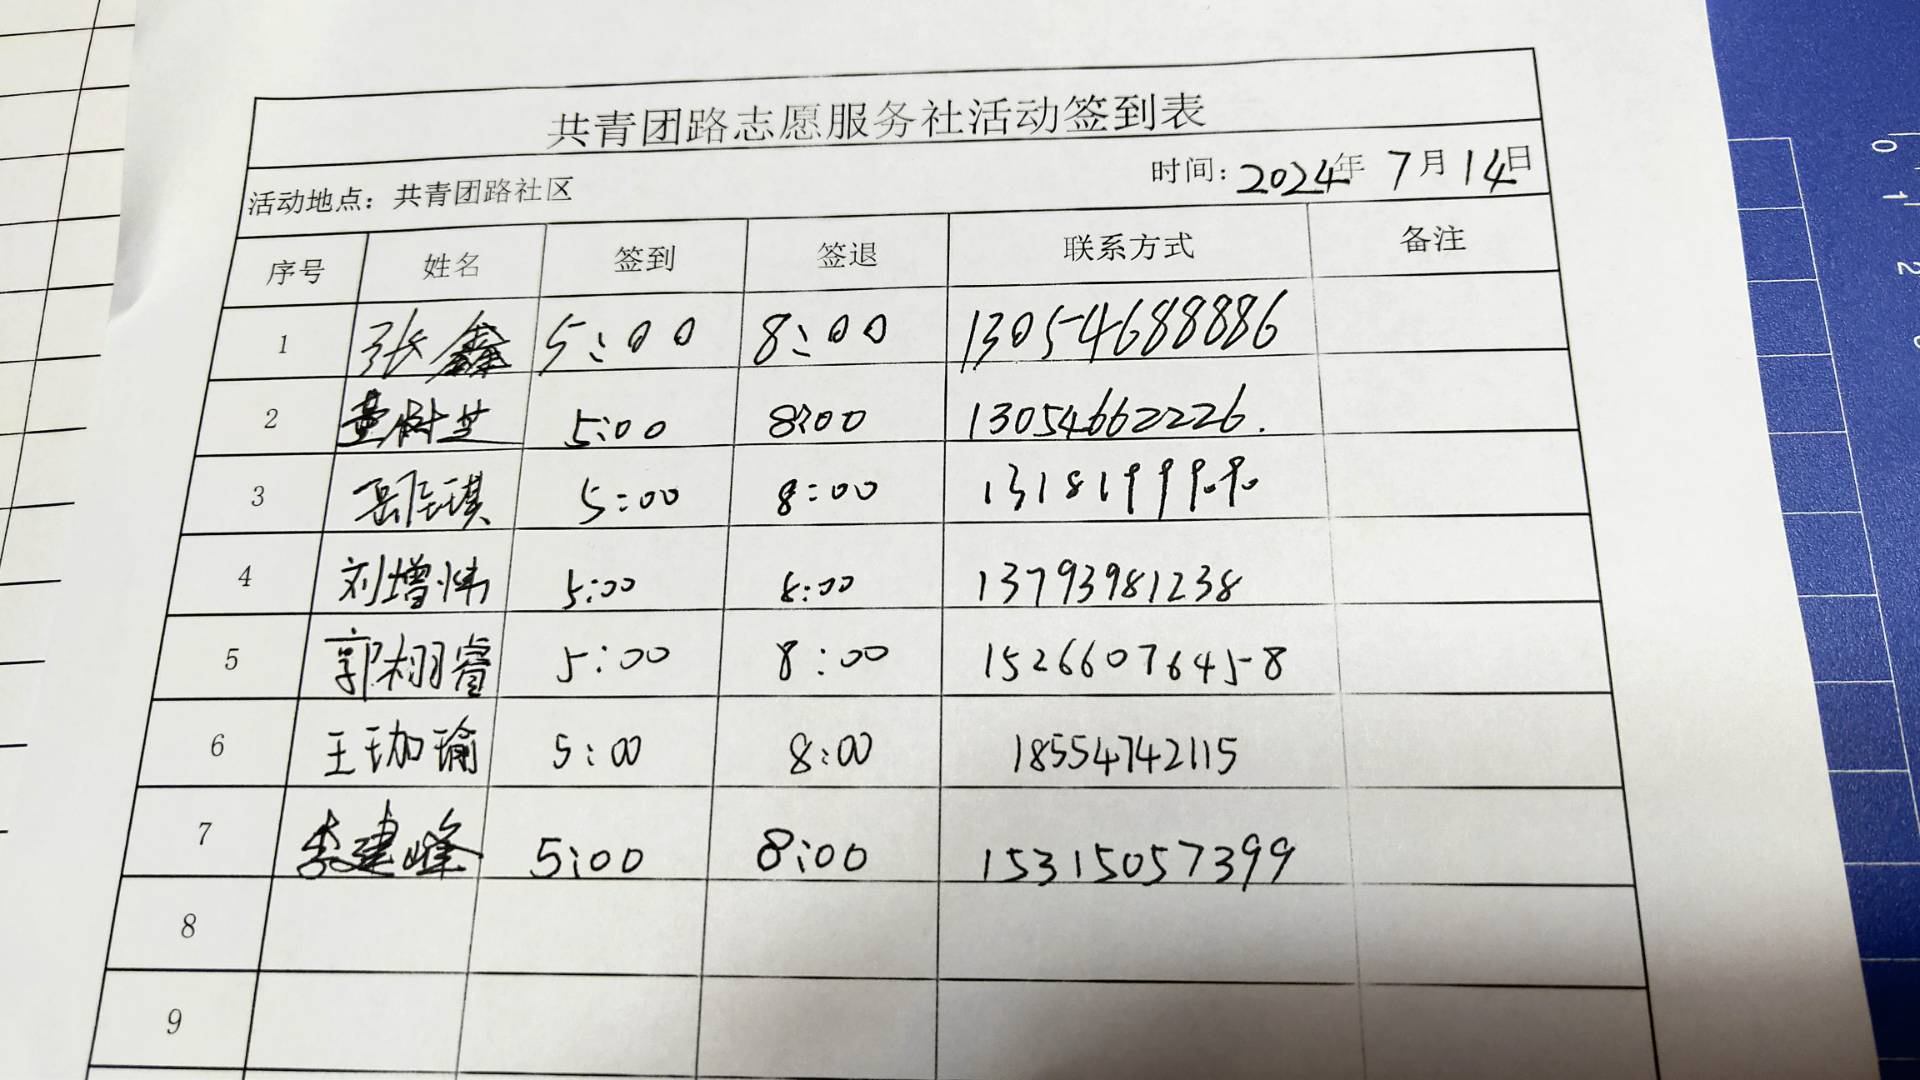 共青团路志愿服务社活动签到表
时间: 2024年 7月14日
活动地点: 共青团路社区
序号 姓名 签到 签退 联系方式 备注
1 张鑫 5:00 8:00 13054688886
2 董树芝 5:00 8:00 13054662226.
3 5:00 8:00
4 刘增炜 5:00 8:00 13793981238
5 郭栩睿 5:00 8:00 15266076458
6 王珈瑜 5:00 8:00 18554742115
7 李建峰 5:00 8:00 15315057399
8
9
0
1
2